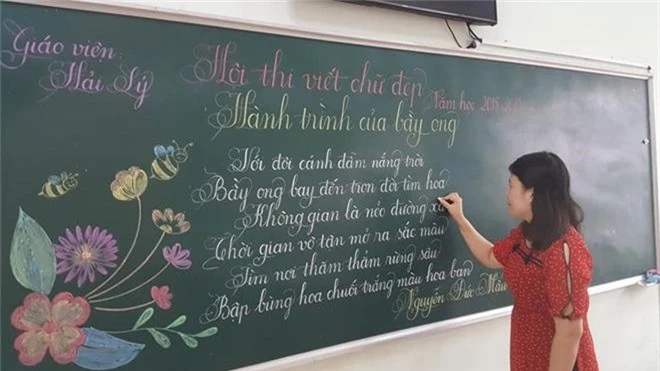 Giáo viên
Hải Lý
Hội thi viết chữ đẹp
Năm học 2018
Hành trình của bầy ong
Với đôi cánh đẫm nắng trời
Bầy ong bay đến trọn đời tìm hoa
Không gian là nẻo đường xa
Thời gian vô tận mở ra sắc màu
Tìm nơi thăm thẳm rừng sâu
Bập bùng hoa chuối trắng màu hoa ban
Nguyễn Đức Mậu